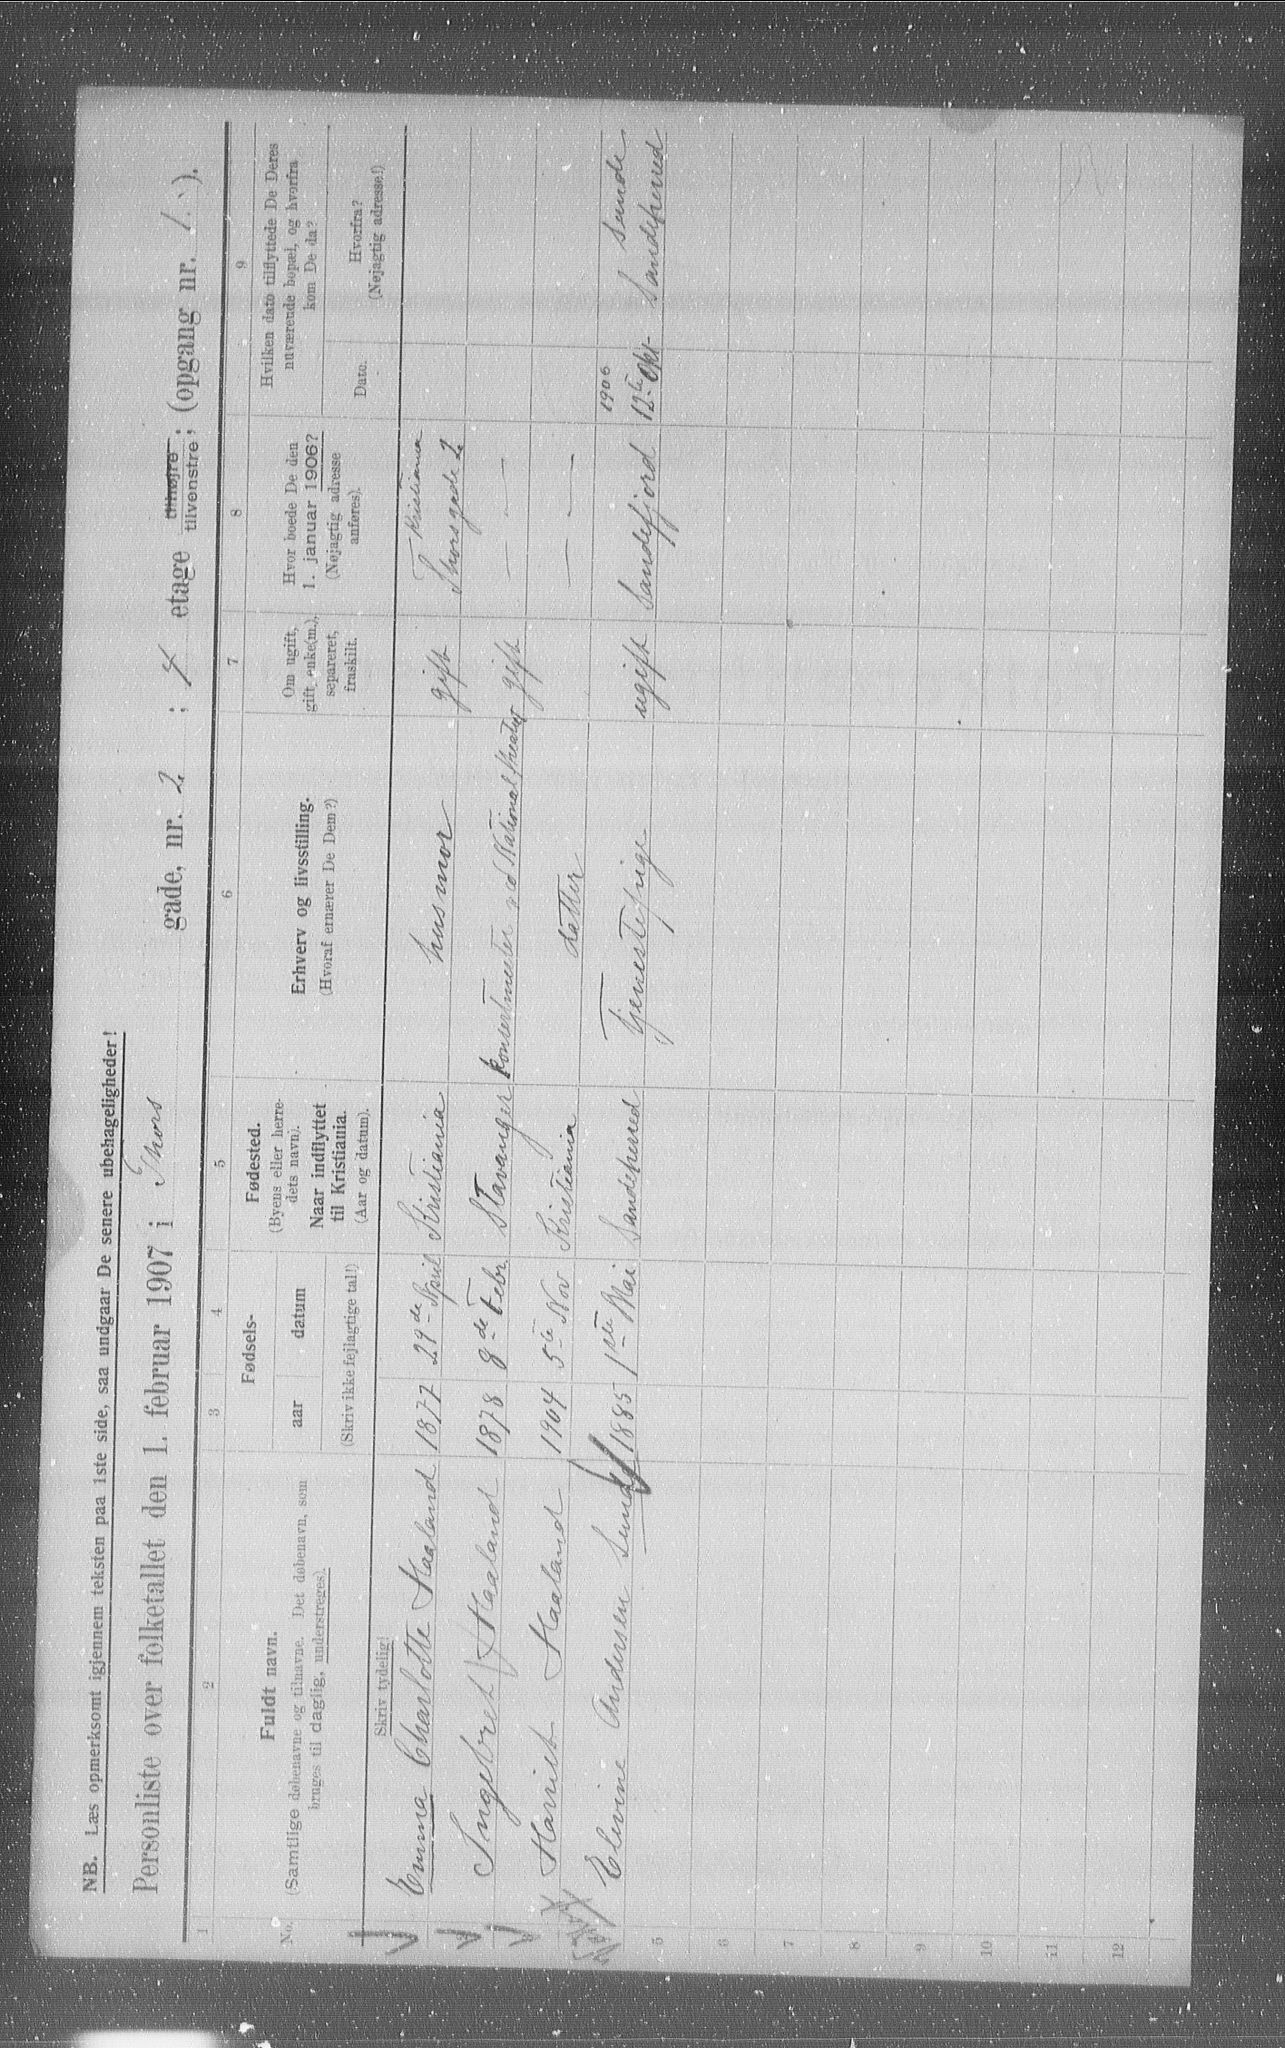 NB. Læs opmerksomt igjennem teksten paa 1ste side, saa undgaar De senere ubehageligheder!
Personliste over folketallet den 1. februar 1907 i Thors gade, nr. 2 ; 4 etage tilhøjre tilvenstre ; (opgang nr. 1.).
1 2 3 4 5 6 7 8 9
No.
Fuldt navn.
(Samtlige døbenavne og tilnavne. Det døbenavn, som
bruges til daglig, understreges).
Fødsels-
aar datum
Fødested.
(Byens eller herre-
dets navn).
Naar indflyttet
til Kristiania.
(Aar og datum).
Erhverv og livsstilling.
(Hvoraf ernærer De Dem?)
Om ugift,
gift, enke(m.),
separeret,
fraskilt.
Hvor boede De den
1. januar 1906?
(Nøjagtig adresse
anføres).
Hvilken dato tilflyttede De Deres
nuværende bopæl, og hvorfra
kom De da?
Dato.
Hvorfra?
(Nøjagtig adresse!)
Skriv tydelig!
(Skriv ikke fejlagtige tal!)
Emma Charlotte Haaland 1877 29de April Kristiania husmor gift Kristiania Thorsgade 2
Ingebret Haaland 1878 8de Febr. Stavanger konsertmester ved Nationaltheatret gift — " —
Harriet Haaland 1904 5te Nov Kristiania datter — " —
Elevine Andersen Sunde 1885 1ste Mai Sandeherred Tjenestepige ugift Sandefjord 1906 12te Okt. Sunde Sandeherred
5
6
7
8
9
10
11
12